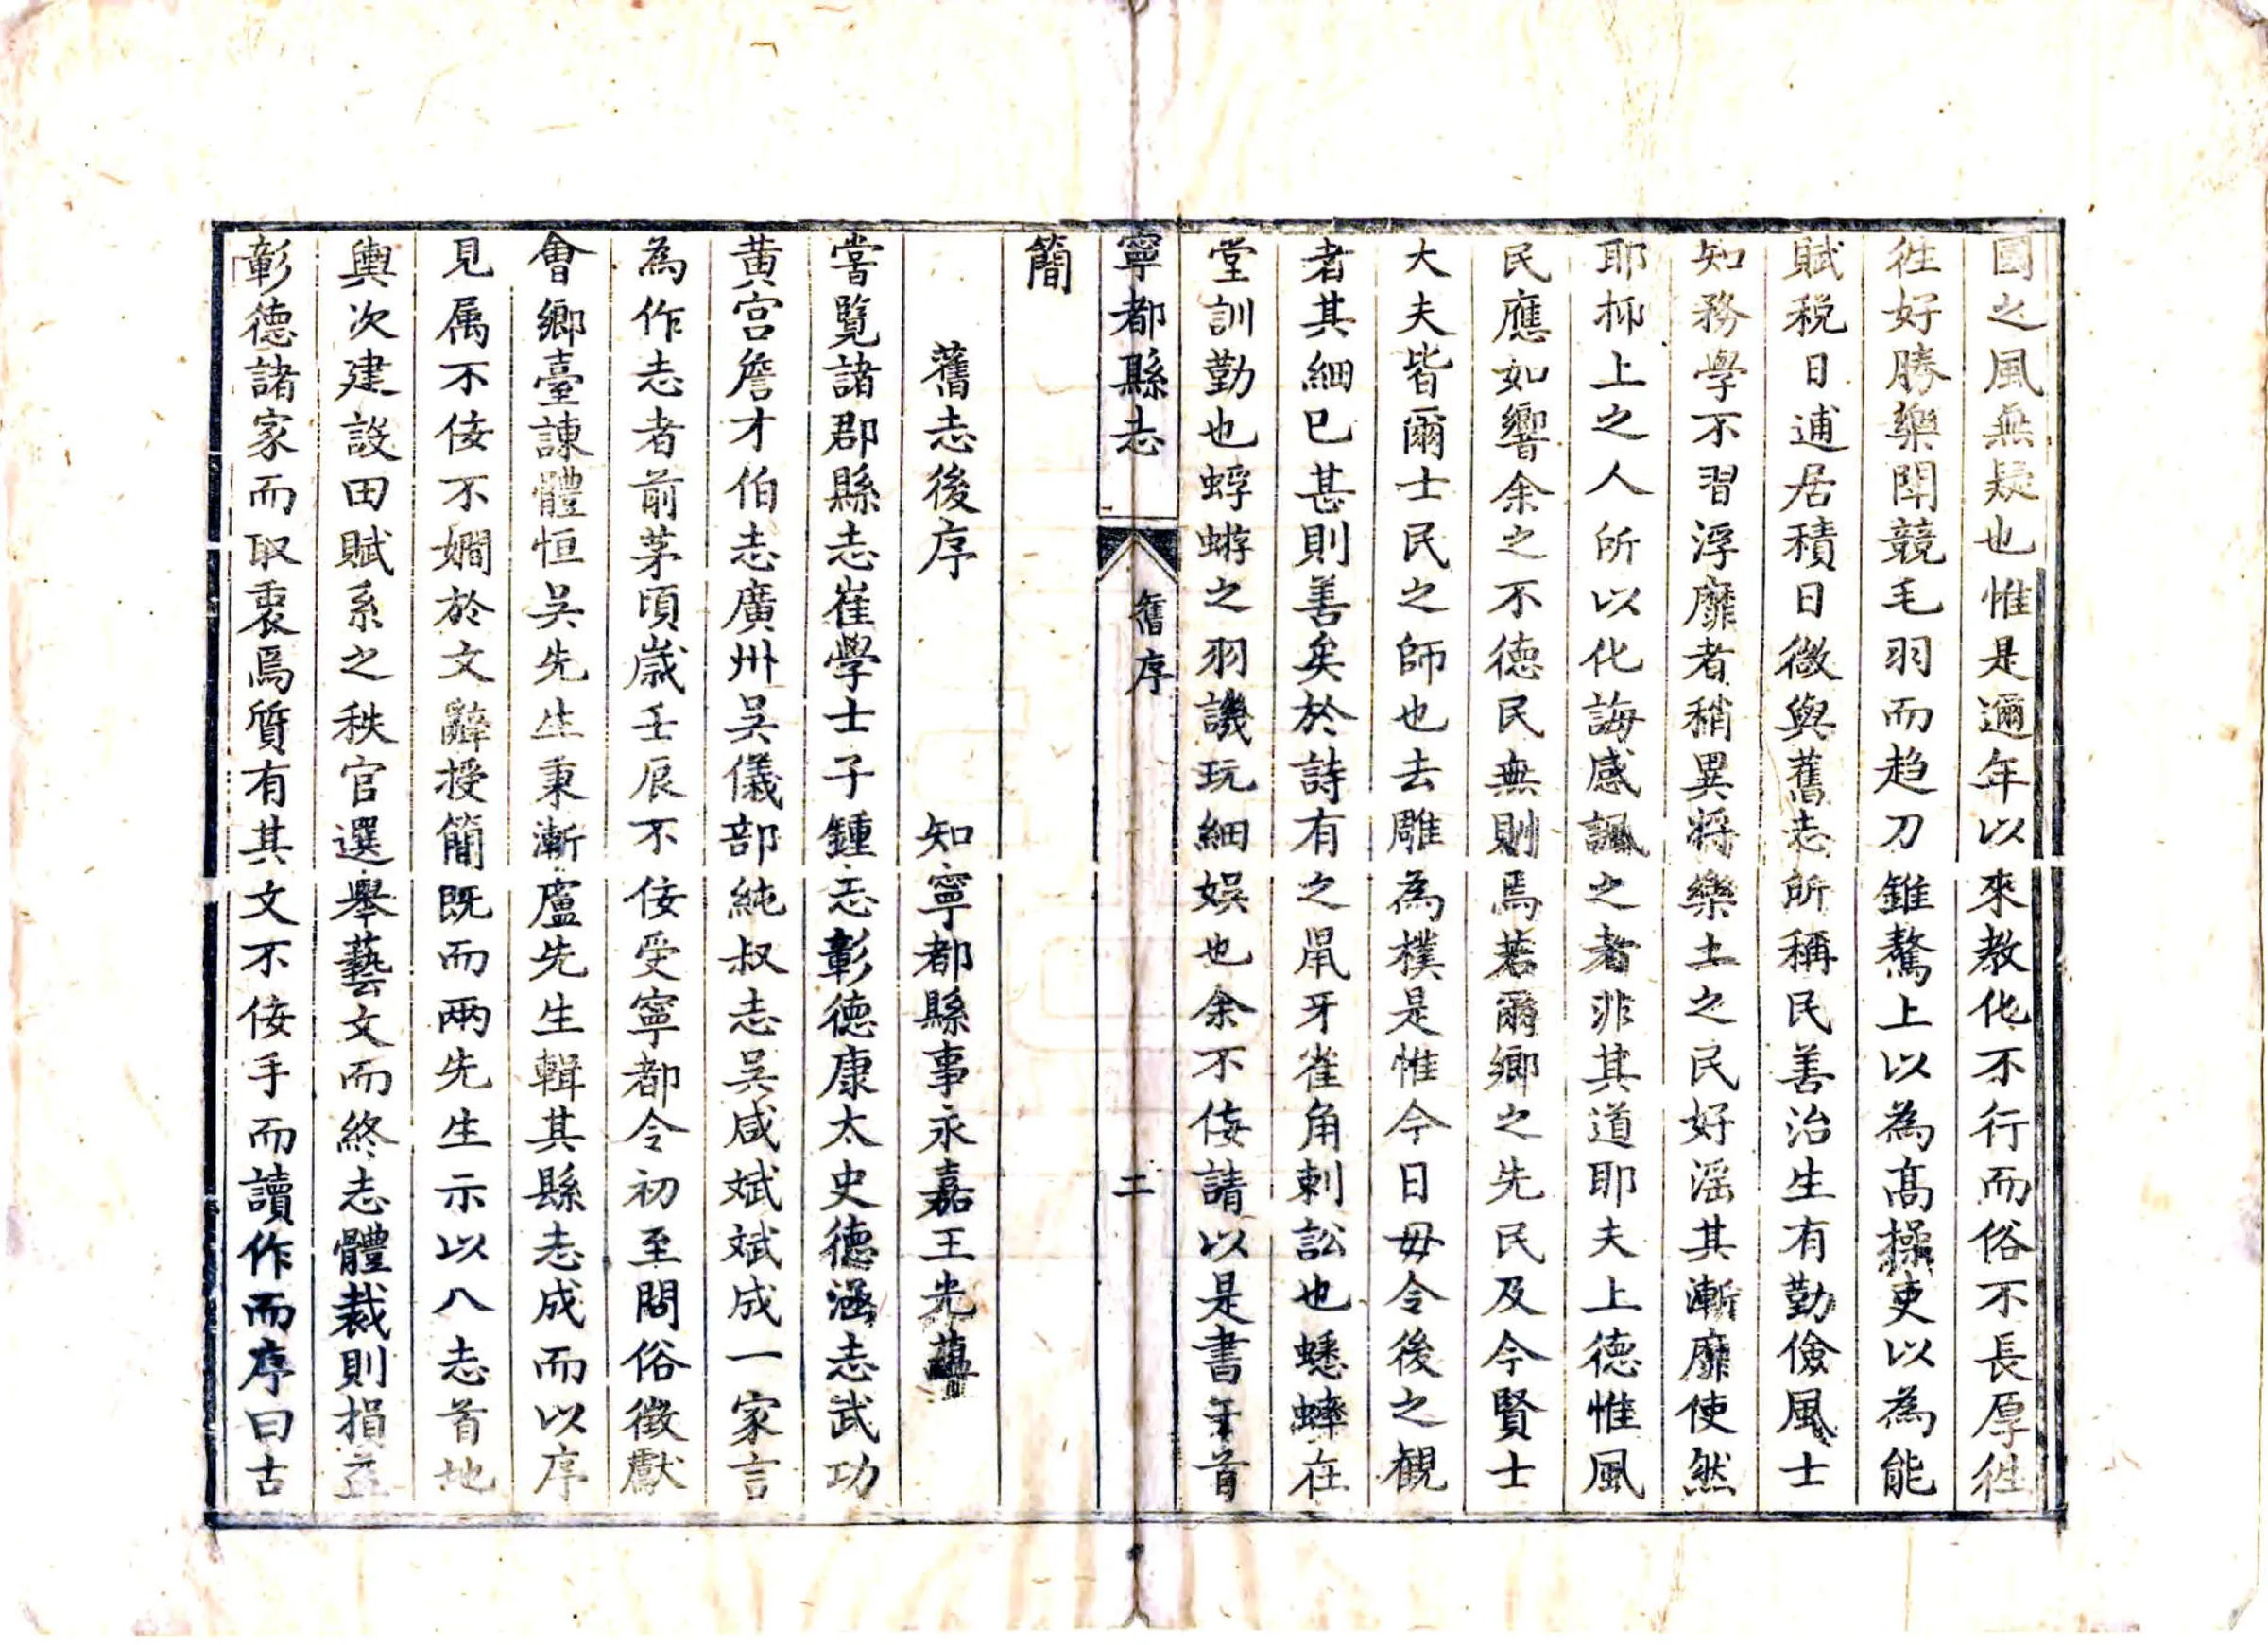 國之風無疑也惟是邇年以來教化不行而俗不長厚徃
徃好勝樂鬪競毛羽而趋刀錐驁上以為髙操吏以為能
賦税日逋居積日微與舊志所稱民善治生有勤儉風士
知務學不習浮靡者稍異将樂土之民好滛其漸靡使然
耶抑上之人所以化誨感諷之者非其道耶夫上徳惟風
民應如響余之不徳民無則焉若爾鄉之先民及今賢士
大夫皆爾士民之師也去雕為樸是惟今日毋令後之観
者其細已甚則善矣於詩有之鼠牙雀角刺訟也蟋蟀在
堂訓勤也蜉蝣之羽譏玩細娯也余不佞請以是書于首
簡
寧都縣志
舊序
二
舊志後序
知寧都縣事永嘉王光蘊
嘗覽諸郡縣志崔學士子鍾志彰德康太史德涵志武功
黄宫詹才伯志廣州吳儀部純叔志吳咸斌斌成一家言
為作志者前茅頃嵗壬辰不佞受寧都令初至問俗徴獻
會鄉臺諫體恒吳先生秉漸盧先生輯其縣志成而以序
見属不佞不嫺於文辭授簡既而兩先生示以八志首地
輿次建設田賦系之秩官選舉藝文而終志體裁則損益
彰德諸家而取衷焉質有其文不佞手而讀作而序曰古